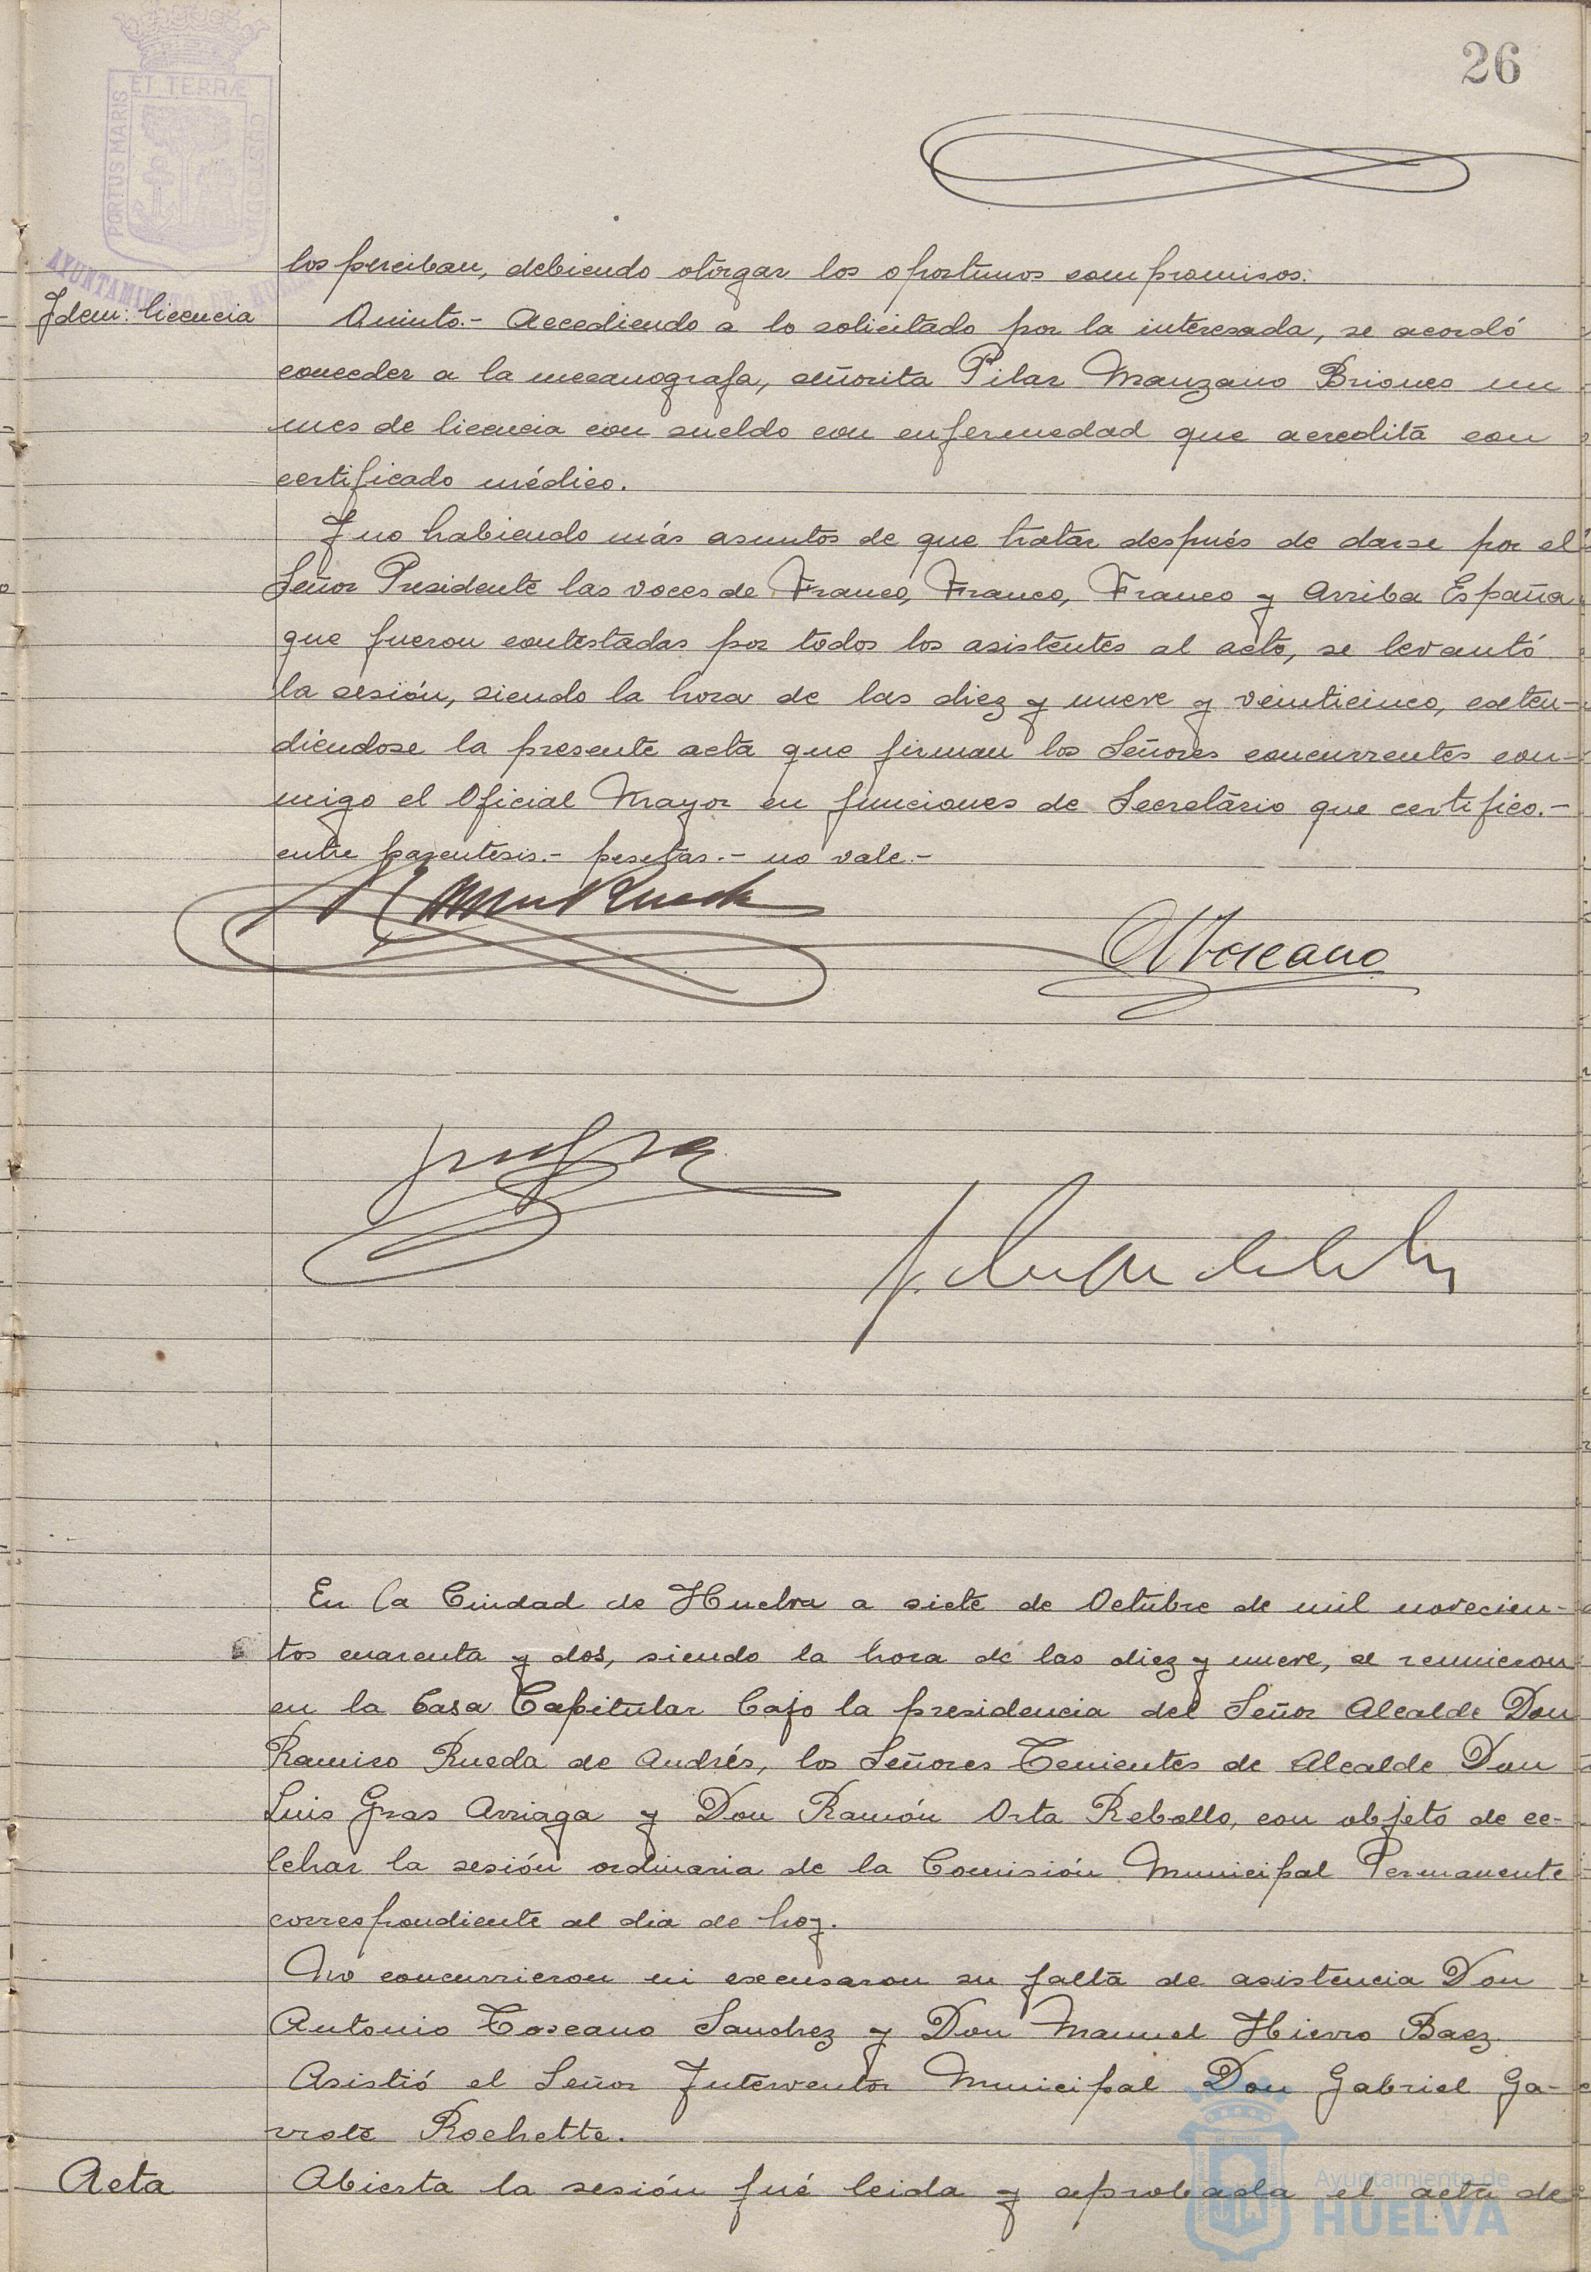 26
PORTUS MARIS ET TERRÆ CUSTODIA
AYUNTAMIENTO DE HUELVA
los perciban, debiendo otorgar los oportunos compromisos.
Idem: licencia
Quinto.- Accediendo a lo solicitado por la interesada, se acordó
conceder a la mecanografa, señorita Pilar Manzano Briones un
mes de licencia con sueldo con enfermedad que acredita con
certificado médico.
Y no habiendo más asuntos de que tratar después de darse por el
Señor Presidente las voces de Franco, Franco, Franco y Arriba España
que fueron contestadas por todos los asistentes al acto, se levantó
la sesión, siendo la hora de las diez y nueve y veinticinco, exten-
diendose la presente acta que firman los Señores concurrentes con-
migo el Oficial Mayor en funciones de Secretario que certifico.-
entre parentesis.- pesetas.- no vale.-
Rueda
Toscano
En la Ciudad de Huelva a siete de Octubre de mil novecien-
tos cuarenta y dos, siendo la hora de las diez y nueve, se reunieron
en la Casa Capitular bajo la presidencia del Señor Alcalde Don
Ramiro Rueda de Andrés, los Señores Tenientes de Alcalde Don
Luis Gras Arriaga y Don Ramón Orta Rebollo, con objeto de ce-
lebrar la sesión ordinaria de la Comisión Municipal Permanente
correspondiente al dia de hoy.
No concurrieron ni excusaron su falta de asistencia Don
Antonio Toscano Sanchez y Don Manuel Hierro Baez.
Asistió el Señor Interventor Municipal Don Gabriel Ga-
vrote Rochette.
Acta
Abierta la sesión fué leida y aprobada el acta de
Ayuntamiento de
HUELVA